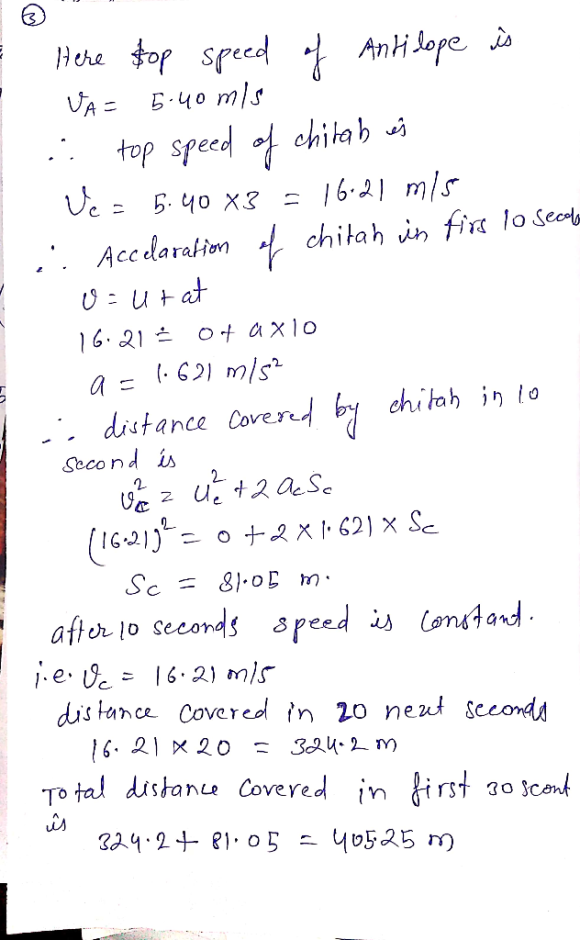 ③
Here top speed of Antilope is
VA = 5.40 m/s
∴ top speed of chitah is
Vc = 5.40 X3 = 16.21 m/s
∴ Accelaration of chitah in firs 10 Seconds
v = u + at
16.21 = 0 + a X10
a = 1.621 m/s²
∴ distance Covered by chitah in 10
Second is
Vc² = Uc² + 2 ac Sc
(16.21)² = 0 + 2 X 1.621 X Sc
Sc = 81.05 m.
after 10 seconds speed is Constant.
i.e. Vc = 16.21 m/s
distance Covered in 20 next seconds
16.21 X 20 = 324.2 m
Total distance Covered in first 30 scont
is
324.2 + 81.05 = 405.25 m